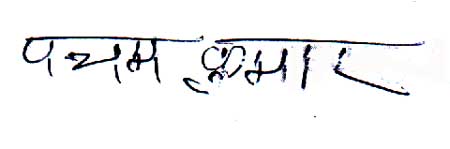 पंचम कुमार